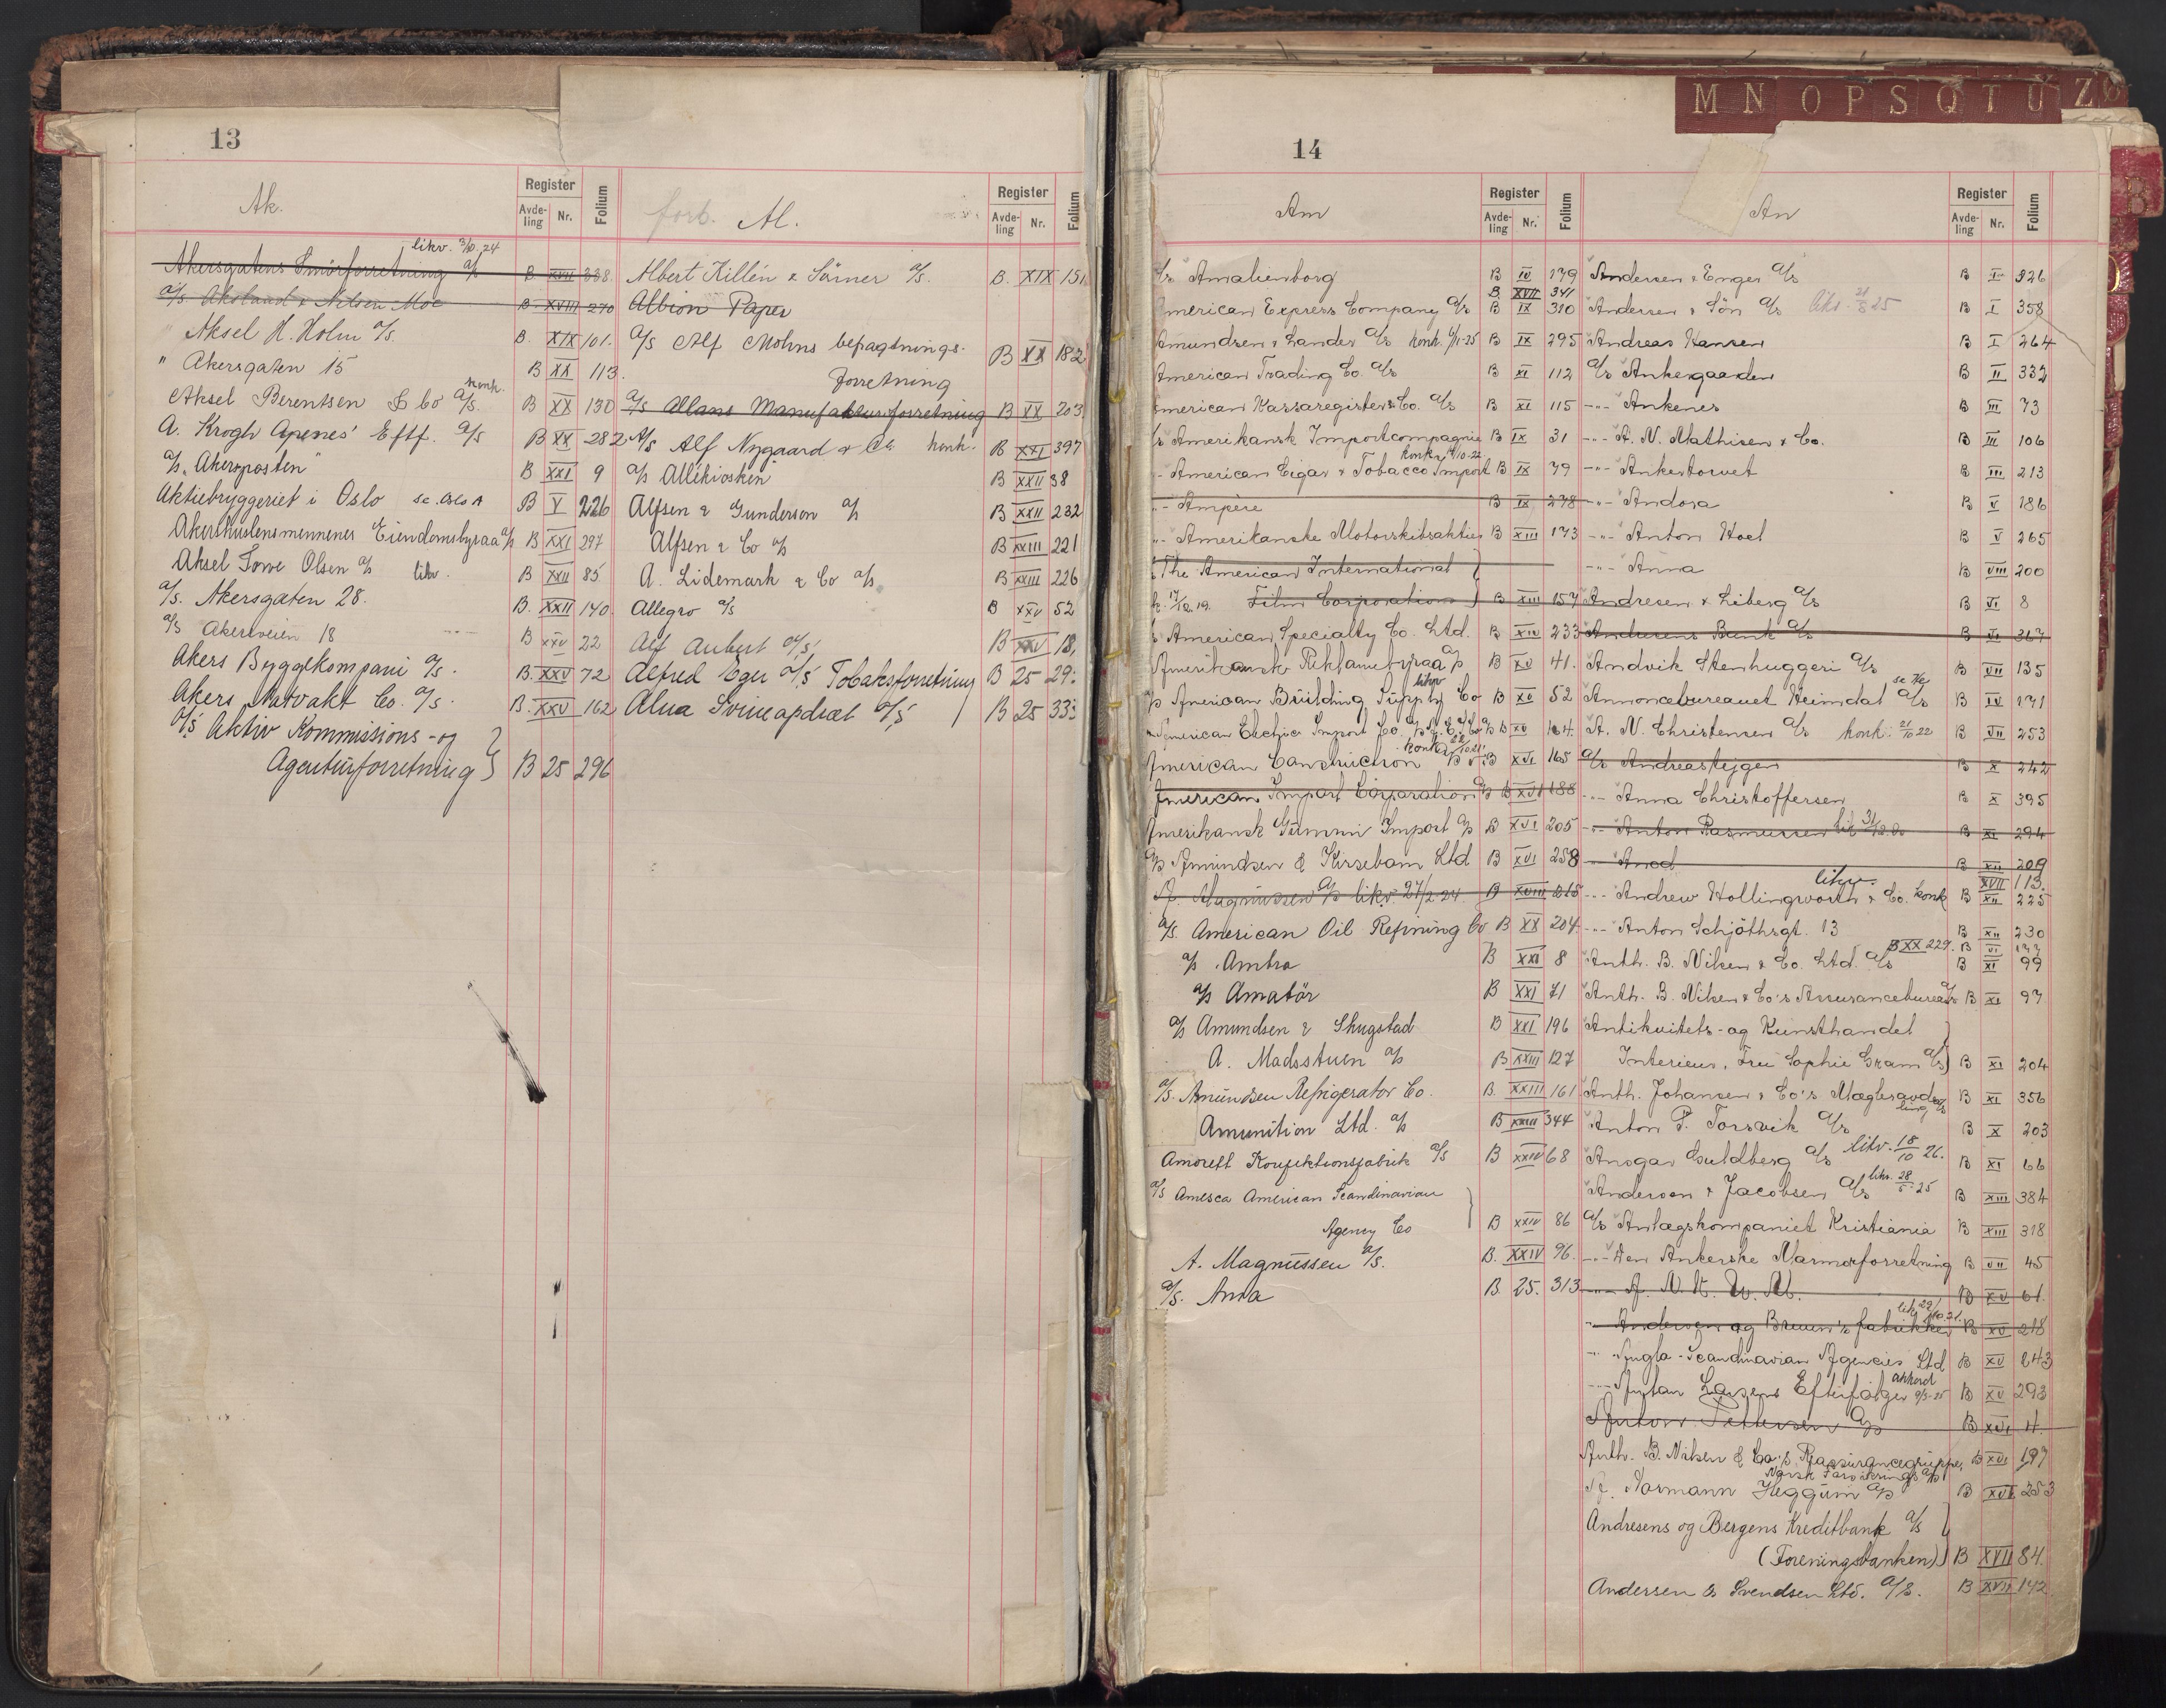 13
Ak.
Register
Avde-
ling
Nr.
Folium
likv. 3/10.24
Akersgatens Smörforretning a/s B. XVII 338.
a/s Aksland & Nilsen Moe B XVIII 270
" Aksel H. Holm a/s. B. XIX 101.
" Akersgaten 15 B XX 113.
Aksel Berentsen & Co a/s. konk. B XX 130
A. Krogh Apenes' Eftf. a/s B XX 282
a/s "Akersposten" B XXI 9
Aktiebryggeriet i Oslo se. Oslo A B V 226
Akershuslensmennenes Eiendomsbyraa a/s B XXI 297
Aksel Towe Olsen a/s likv. B XXII 85
a/s. Akersgaten 28. B. XXII 140.
a/s Akersveien 18 B XXV 22
Akers Byggekompani a/s. B. XXV 72
Akers Natvakt Co. a/s. B. XXV 162
a/s Aktiv Kommissions- og
Agenturforretning } B 25 296
forts. Al.
Register
Avde-
ling
Nr.
Folium
Albert Killén & Sörner a/s. B. XIX 151
Albion Paper
a/s Alf Mohns befragtnings-
forretning B XX 182
a/s Allans Manufakturforretning B XX 203
A/s Alf Nygaard & Co konk. B XXI 397
a/s Allékiosken B XXII 38
Alfsen & Gunderson a/s B XXII 232
Alfsen & Co a/s B XXIII 221
A. Lidemark & Co a/s. B XXIII 226
Allegro a/s B XXV 52
Alf Aubert a/s B XXV 18,
Alfred Eger a/s Tobaksforretning B 25 29
Alna Svineapdræt a/s B 25 33
14
Am
Register
Avde-
ling
Nr.
Folium
a/s Amalienborg B IV 179
B. XVII 341
American Express Company a/s B IX 310
Amundsen & Lander a/s konk. 6/1-25 B IX 295
American Trading Co. a/s B XI 112
American Kassaregister Co. a/s B XI 115
a/s Amerikansk Importcompagnie B IX 31
-"- American Cigar & Tobacco Import B IX 79
-"- Ampère B IX 298
-"- Amerikanske Motorskibsaktier B XIII 173
The American International
k. 17/12.19. Film Corporation } B XIII 157
American Specialty Co. Ltd. B XIV 233
Amerikansk Reklamebyraa a/s B XV 41.
likv
a/s American Building Supply Co B XV 52
American Electric Import Co. B XV 164.
konk. 22/10 21
American Construction a/s B XVI 165
American Import Corporation a/s B XVI 188
Amerikansk Gummi Import a/s B XVI 205
a/s Amundsen & Kirsebom Ltd B XVI 258
A. Magnussen a/s likv. 27/2.24. B XVIII 215
a/s. American Oil Refining Co B XX 204
a/s. Ambra B XXI 8
a/s Amatör B XXI 71
a/s Amundsen & Skugstad B XXI 196
A. Madsstuen a/s B XXIII 127
a/s. Amundsen Refrigerator Co. B. XXIII 161
Amunition Ltd. a/s B XXIII 344
Amorett Konfektionsfabrik a/s B XXIV 68
a/s Amesca American Scandinavian
Agency Co B XXIV 86
A. Magnussen a/s. B. XXIV 96.
a/s. Amra B. 25. 313
An
Register
Avde-
ling
Nr.
Folium
Andersen & Enger a/s B I 226
Andersen & Sön a/s B I 358
Andreas Hansen B I 264
a/s Ankergaarden B II 332
-"- Ankenes B III 73
-"- A. N. Mathisen & Co. B III 106
-"- Ankertorvet B III 213
-"- Andora B V 186
-"- Anton Hoel B V 265
-"- Anna B VIII 200
Andresen & Liberg a/s B VI 8
Andresens Bank a/s B VI 367
Andvik Stenhuggeri a/s B VII 135
Annoncebureauet Heimdal a/s B IV 171
A. N. Christensen a/s konk. 21/10 22 B VII 253
a/s Andreastegen B X 242
-"- Anna Christoffersen B X 395
-"- Anton Rasmussen B XI 294
-"- Anod B XII 209
likv. XVII 113.
-"- Andrew Hollingworth & Co. konk B XII 225
-"- Anton Schjöthsgt. 13 B XII 230
B XX 229. B VI 177
Anth. B. Nilsen & Co. Ltd. a/s B XI 99
Anth. B. Nilsen & Co's Assurancebureau a/s B XI 97
Antikvitets- og Kunsthandel
Interieur, Fru Sophie Gram a/s } B XI 204
Anth. Johansen & Co's Mægleravde
ling a/s B XI 356
Anton P. Torsvik a/s B X 203
Ansgar Guldberg a/s likv. 18/10 26. B XI 66
Anderson & Jacobsen a/s likv. 28/5-25 B XIII 384
a/s Anlægskompaniet Kristiania B XIII 318
-"- Den Ankerske Marmorforretning B VII 45
-"- A. N. K. W. Ab. B XV 61.
Andersen og Bruun's fabrikker B XV 218
-"- Anglo-Scandinavian Agencies Ltd B XV 243
akkord
-"- Anton Larsens Efterfölger 9/3-25 B XV 293
Anton Pettersen a/s B XVI 4.
Anth. B. Nilsen & Co's Reassurancegruppe, B XVI 197
Norsk Forsikrings a/s
A. Normann Heggum a/s B XVI 253
Andresens og Bergens Kreditbank a/s
(Foreningsbanken) } B XVII 84.
Andersen & Svendsen Ltd. a/s. B XVII 142
M N O P S Q T U Y Z Ø